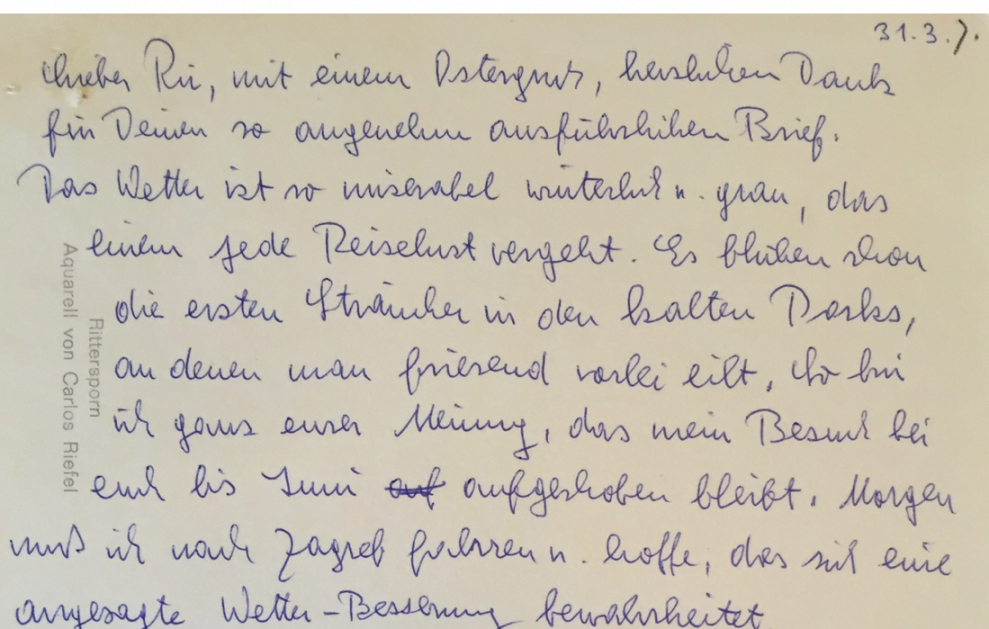 31.3.
Lieber Ri, mit einem Ostergruß, herzlichen Dank
für Deinen so angenehm ausführlichen Brief.
Das Wetter ist so miserabel winterlich u. grau, das
einem jede Reiselust vergeht. Es blühen schon
die ersten Sträucher in den kalten Parks,
an denen man frierend vorbei eilt. So bin
ich ganz eurer Meinung, das mein Besuch bei
euch bis Juni auf aufgehoben bleibt. Morgen
muß ich nach Zagreb fahren u. hoffe, das sich eine
angesagte Wetter-Besserung bewahrheitet.
Rittersporn
Aquarell von Carlos Riefel